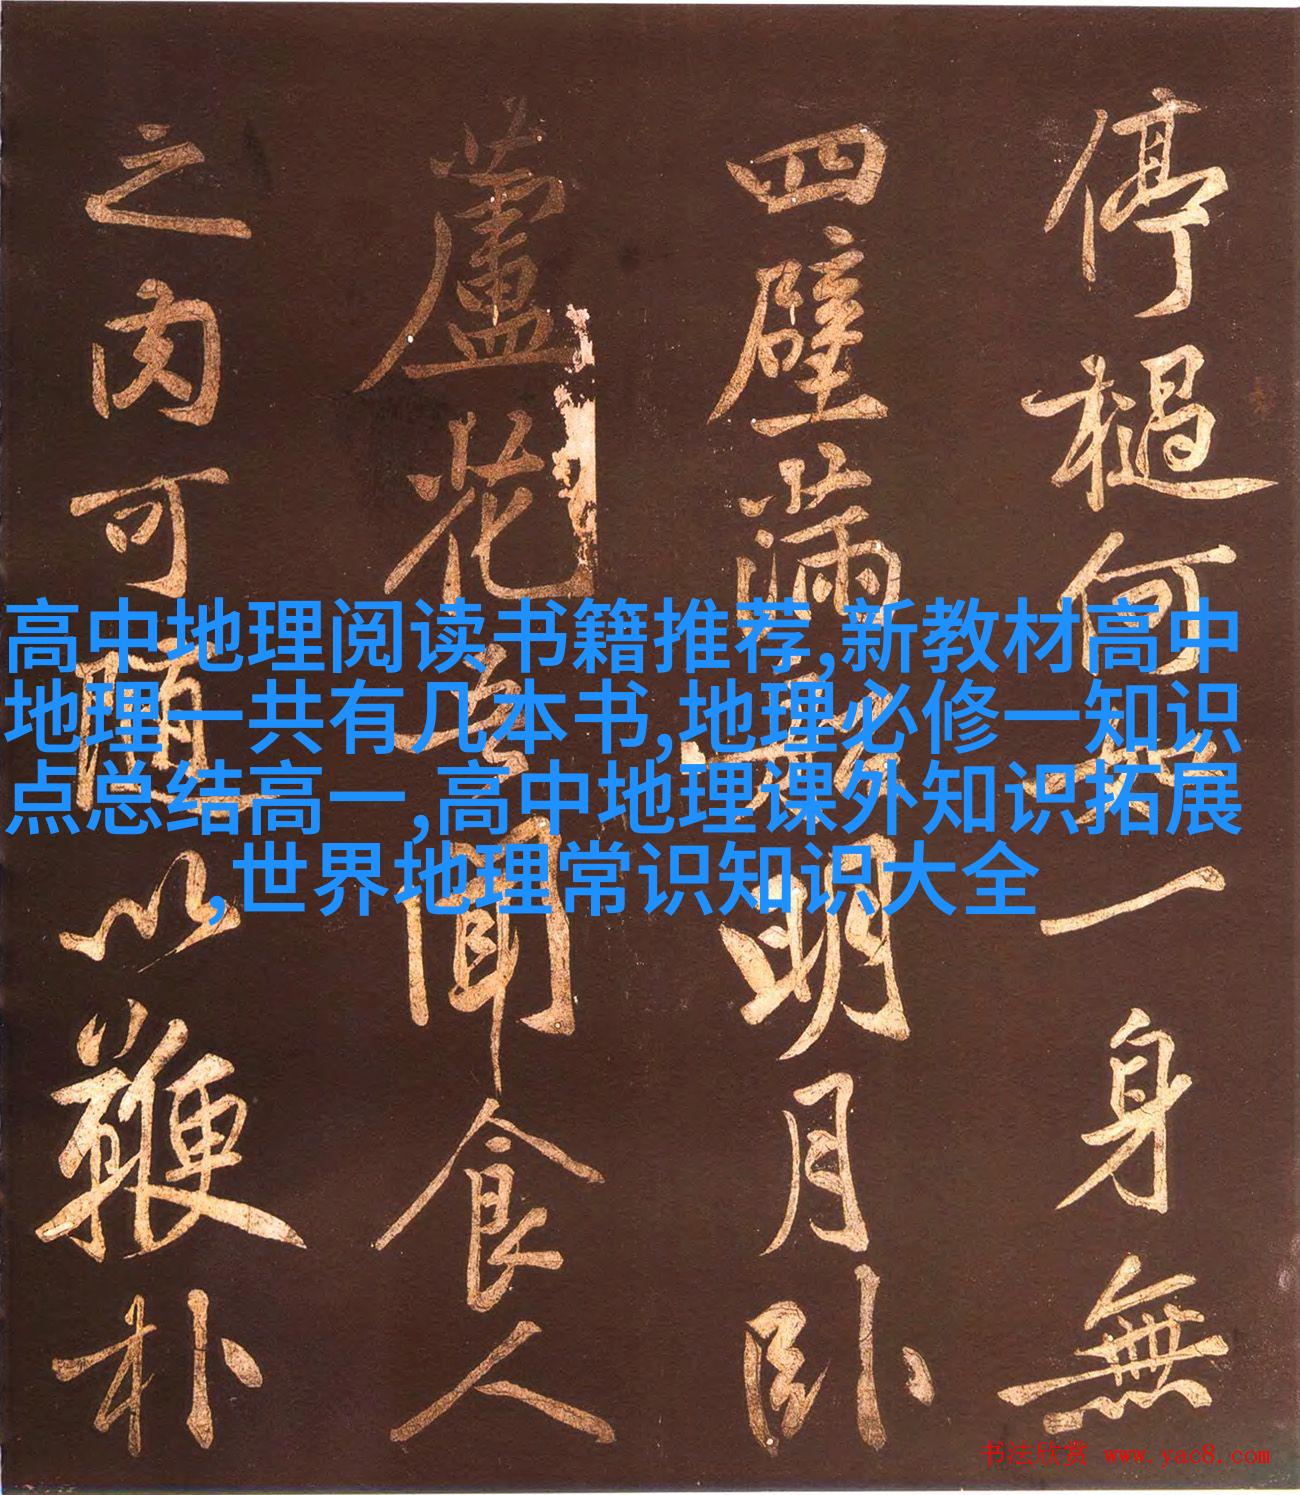 停檛何無一身無
四壁滿明月卧
蘆花吾聞食人
之肉可隨以鞭朴
高中地理阅读书籍推荐,新教材高中
地理一共有几本书,地理必修一知识
点总结高一,高中地理课外知识拓展
,世界地理常识知识大全
书法欣赏 www.yac8.com